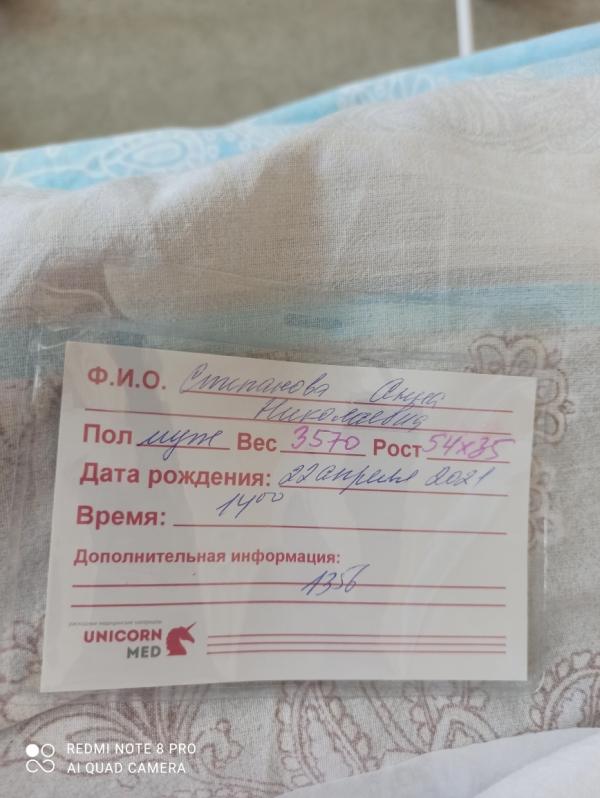 Ф.И.О. Степанова Анна
Николаевна
Пол муж Вес 3570 Рост 54х35
Дата рождения: 22 апреля 2021
Время: 14⁰⁰
Дополнительная информация:
1356
расходные медицинские материалы
UNICORN
MED
REDMI NOTE 8 PRO
AI QUAD CAMERA